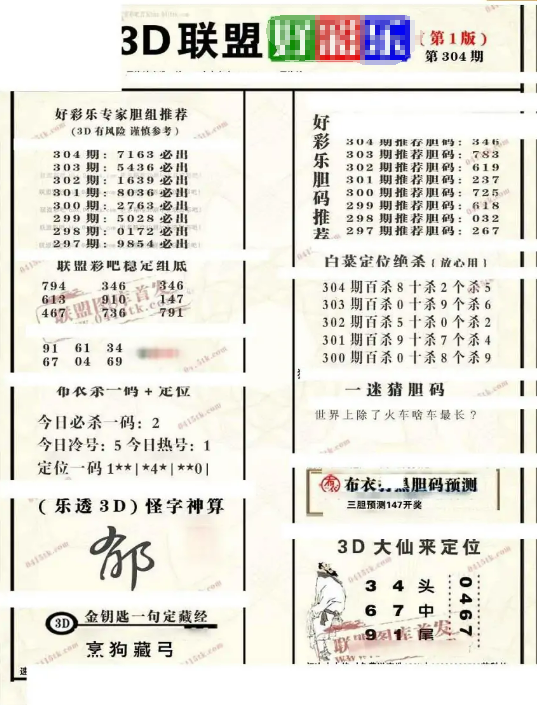 3D联盟
(第1版)
第304期
好彩乐专家胆组推荐
(3D有风险 谨慎参考)
304期: 7163必出
303期: 5436必出
302期: 1639必出
301期: 8036必出
300期: 2763必出
299期: 5028必出
298期: 0172必出
297期: 9854必出
联盟彩吧稳定组底
794 346 346
613 910 147
467 736 791
91 61 34
67 04 69
布衣杀一码+定位
今日必杀一码: 2
今日冷号: 5 今日热号: 1
定位一码 1**|*4*|**0|
(乐透3D)怪字神算
郁
3D 金钥匙一句定藏经
烹狗藏弓
好彩乐胆码推荐
304期推荐胆码: 346
303期推荐胆码: 783
302期推荐胆码: 619
301期推荐胆码: 237
300期推荐胆码: 725
299期推荐胆码: 618
298期推荐胆码: 032
297期推荐胆码: 267
白菜定位绝杀(放心用)
304期百杀8十杀2个杀5
303期百杀0十杀9个杀6
302期百杀5十杀0个杀2
301期百杀9十杀7个杀4
300期百杀0十杀8个杀9
一迷猜胆码
世界上除了火车啥车最长?
布衣 胆码预测
三胆预测147开奖
3D大仙来定位
3 4 头
6 7 中
9 1 尾
0467
联盟图库首发
www.0415tk.com